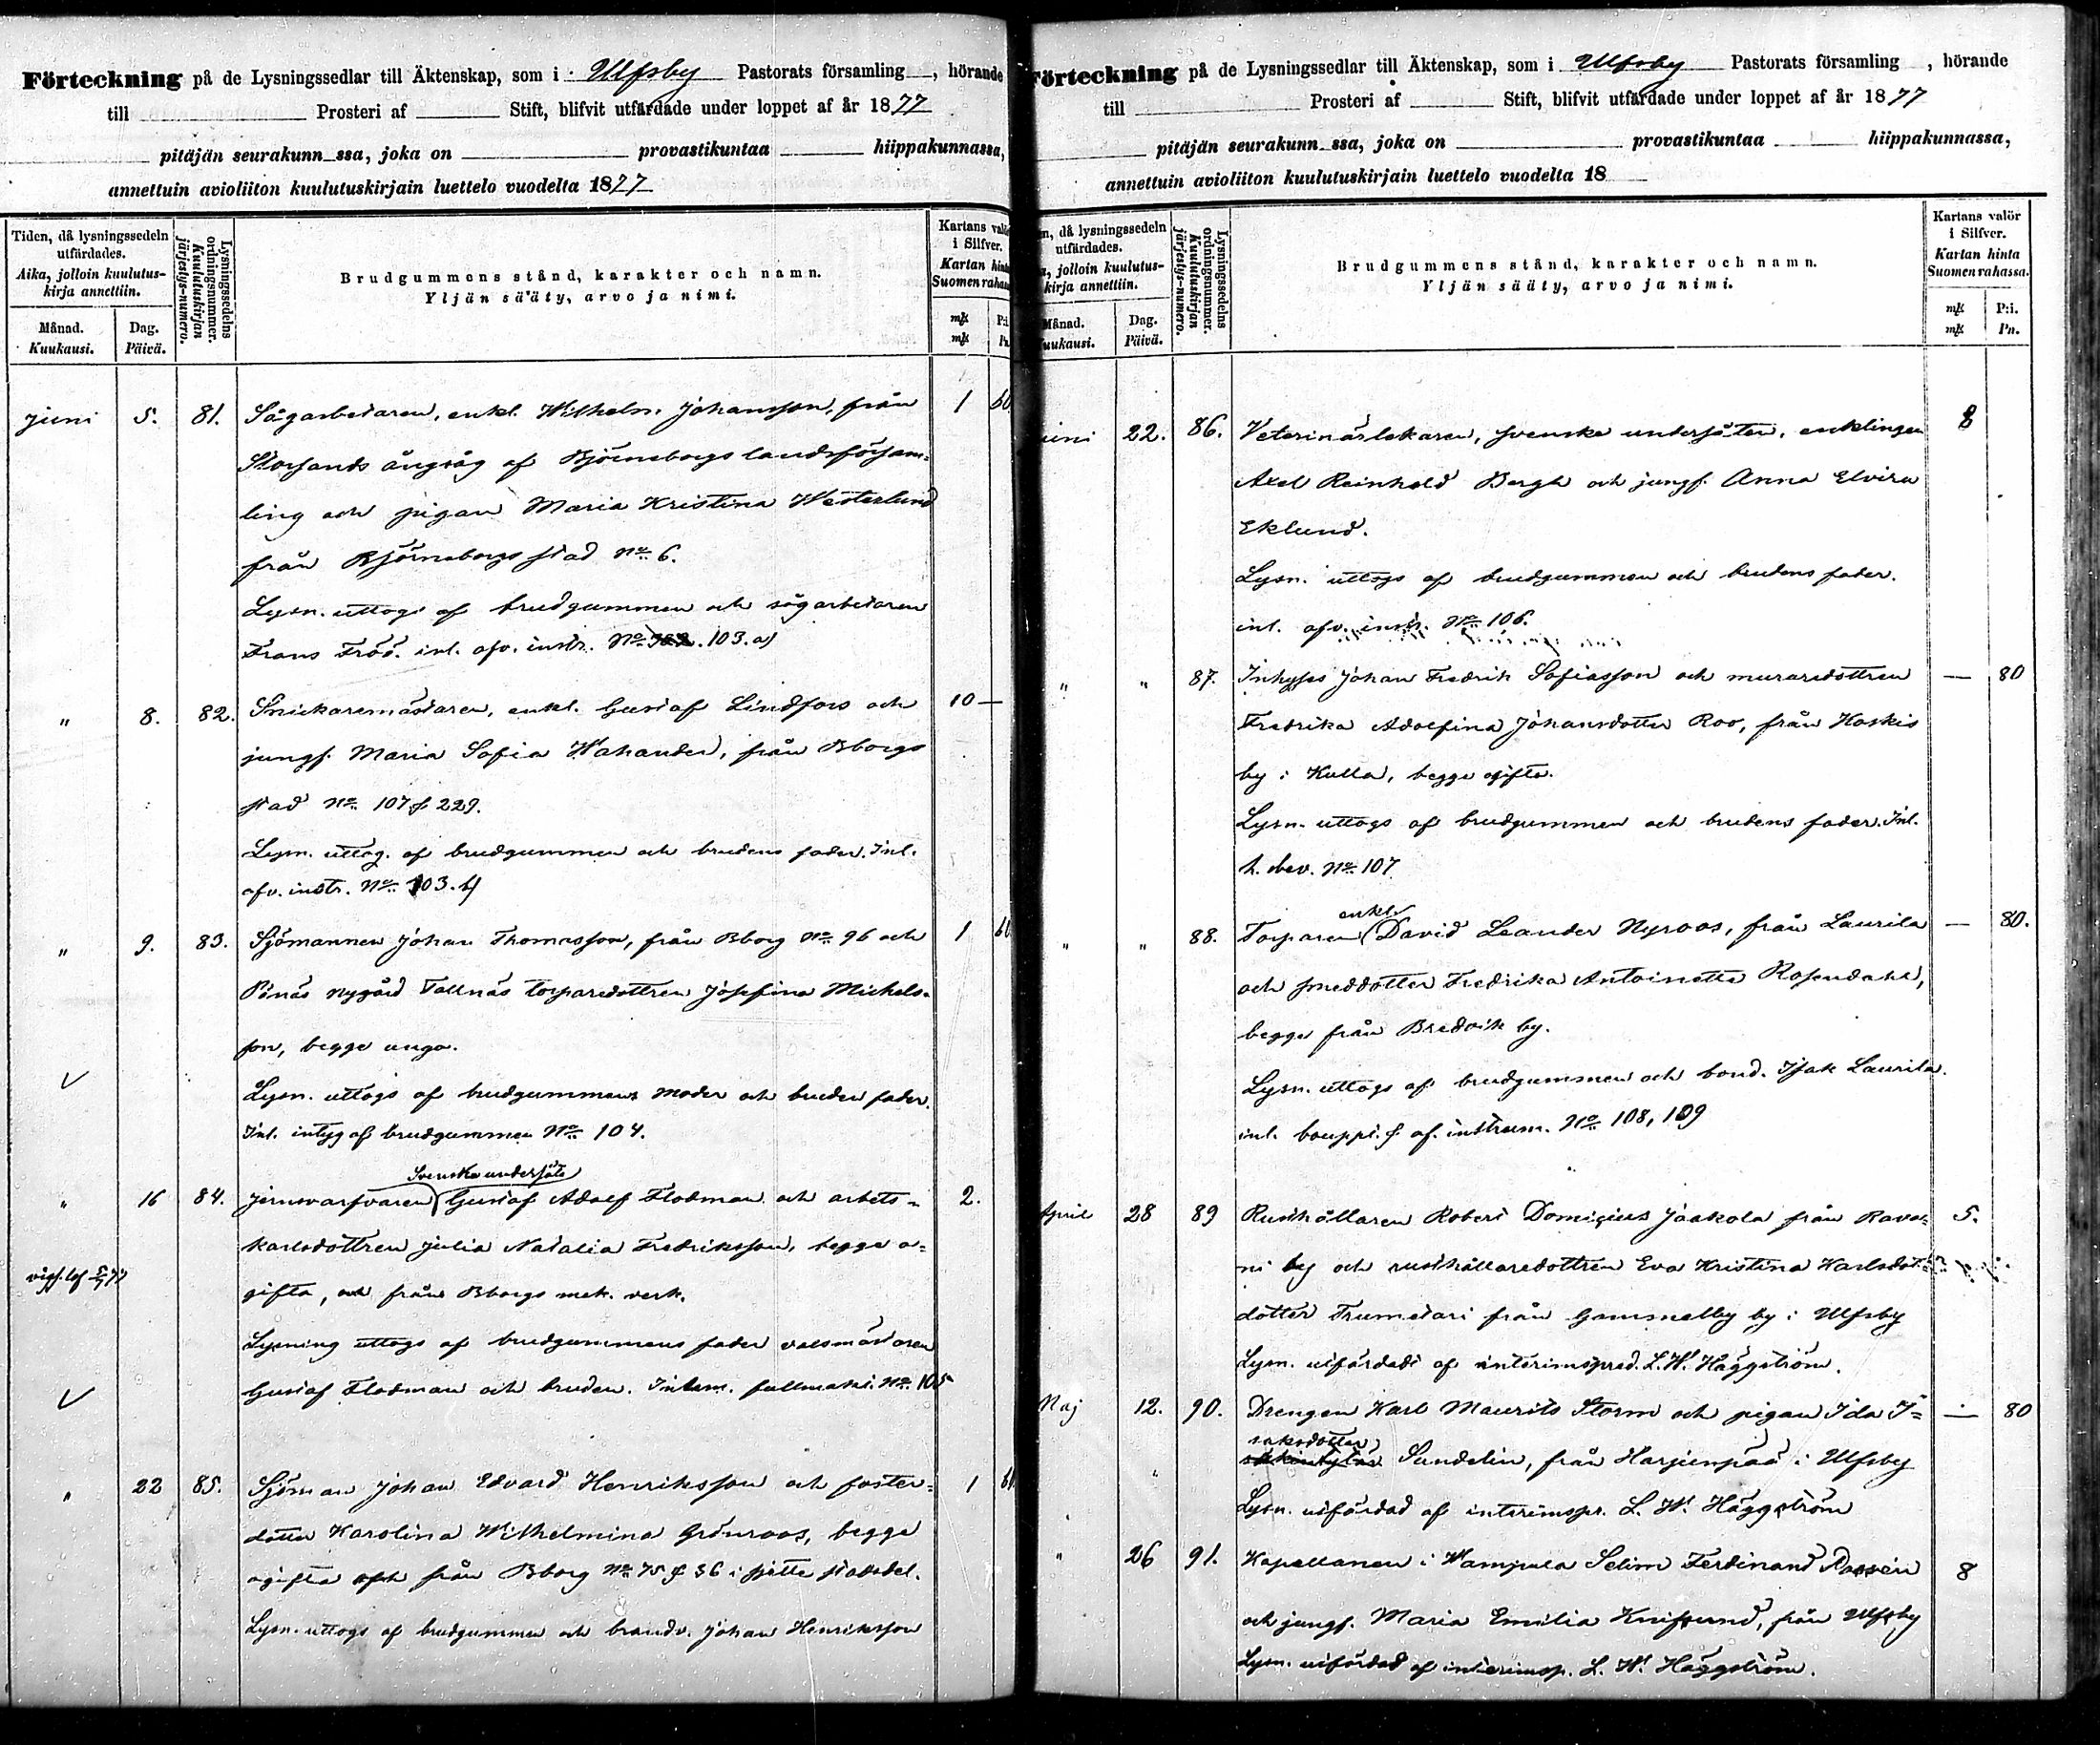 Förteckning på de Lysningssedlar till Äktenskap, som i Ulfsby Pastorats församling , hörande
till Prosteri af Stift, blifvit utfärdade under loppet af år 1877
pitäjän seurakunn ssa, joka on provastikuntaa hiippakunnassa,
annettuin avioliiton kuulutuskirjain luettelo vuodelta 1877
Tiden, då lysningssedeln
utfärdades.
Aika, jolloin kuulutus-
kirja annettiin.
Månad.
Kuukausi.
Dag.
Päivä.
Lysningssedelns
ordningsnummer.
Kuulutuskirjan
järjestys-numero.
Brudgummens stånd, karakter och namn.
Yljän sääty, arvo ja nimi.
Kartans valör
i Silfver.
Kartan hinta
Suomen rahassa
mk P:i
mk Pn.
Juni 5. 81. Sågarbetaren, enkl. Wilhelm Johansson, från 1 60.
Storsands ångsåg af Björneborgs landsförsam-
ling och pigan Maria Kristina Westerlund
från Björneborgs stad No 6.
Lysn. uttogs af brudgummen och sågarbetaren
Frans Fröö. inl. afv. instr. No 103. a)
" 8. 82. Snickaremästaren, enkl. Gustaf Lindfors och 10 —
jungf. Maria Sofia Wahander, från Bborgs
stad No 107 & 229.
Lysn. uttog. af brudgummen och brudens fader. Inl.
afv. instr. No 103. b)
" 9. 83. Sjömannen Johan Thomasson, från Bborg No 96 och 1 60
Pånäs nygård Tallnäs torparedottren Josefina Michels-
son, begge unga.
Lysn. uttogs af brudgummens moder och bruden fader.
Inl. intyg af brudgummen No 104.
Svenska undersåte
" 16 84. Jernsvarfvaren Gustaf Adolf Flodman och arbets- 2.
karlsdottren Julia Natalia Fredriksson, begge o-
gifta, och från Bborgs mek. verk.
Lysning uttogs af brudgummens fader valsmästaren
Gustaf Flodman och bruden. Inlem. fullmakt. No 105
" 22 85. Sjöman Johan Edvard Henriksson och foster- 1 60
dotter Karolina Wilhelmina Grönroos, begge
ogifta och från Bborg No 75 & 36 i sjette stadsdel.
Lysn. uttogs af brudgummen och brandv. Johan Henriksson
Förteckning på de Lysningssedlar till Äktenskap, som i Ulfsby Pastorats församling , hörande
till Prosteri af Stift, blifvit utfärdade under loppet af år 1877
pitäjän seurakunn ssa, joka on provastikuntaa hiippakunnassa,
annettuin avioliiton kuulutuskirjain luettelo vuodelta 18
n, då lysningssedeln
utfärdades.
, jolloin kuulutus-
kirja annettiin.
Månad.
uukausi.
Dag.
Päivä.
Lysningssedelns
ordningsnummer.
Kuulutuskirjan
järjestys-numero.
Brudgummens stånd, karakter och namn.
Yljän sääty, arvo ja nimi.
Kartans valör
i Silfver.
Kartan hinta
Suomen rahassa.
mk P:i.
mk Pn.
uni 22. 86. Veterinärläkaren, svenske undersåten, enklingen 8
Axel Reinhold Bergh och jungf. Anna Elvira
Eklund.
Lysn. uttogs af brudgummen och brudens fader.
inl. afv. instr. No 106.
" " 87. Inhyses Johan Fredrik Sofiasson och muraredottren — 80
Fredrika Adolfina Johansdotter Roo, från Haskis
by i Kulla, begge ogifta.
Lysn. uttogs af brudgummen och brudens fader. Inl.
h. bev. No 107
enkl.
" " 88. Torparen David Leander Nyroos, från Laurila — 80.
och smeddotter Fredrika Antoinetta Rosendahl,
begge från Bredvik by.
Lysn. uttogs af brudgummen och bond. Isak Laurila.
inl. bouppt. & af. instrum. No 108, 109
April 28 89 Rusthållaren Robert Domicius Jaakola från Rava-
ni by och rusthållaredottren Eva Kristina Karlsdot 5.
dotter Trumetari från Gammelby by i Ulfsby
Lysn. utfärdadt af interimspred. L. W. Häggström.
Maj 12. 90. Drengen Karl Maurits Storm och pigan Ida I= — 80
saksdotter
Sundelin, från Harjunpää i Ulfsby
Lysn. utfärdad af interimspr. L. W. Häggström
" 26 91. Kapellanen i Wampula Selim Ferdinand Rossén 8
och jungf. Maria Emilia Knifsund, från Ulfsby
Lysn. utfärdad af interimsp. L. W. Häggström.